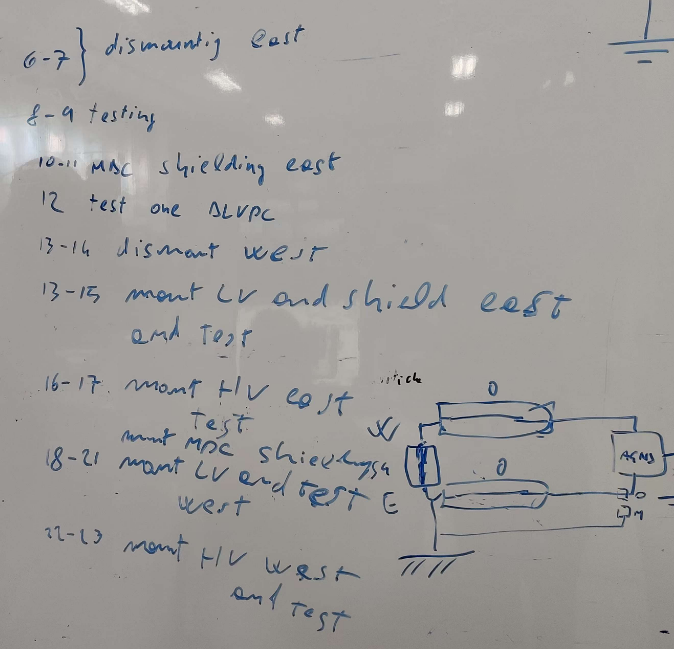 6-7} dismountig East
8-9 testing
10-11 MDC shielding east
12 test one DLVPC
13-14 dismont west
13-15 mont LV and shield east
and test
16-17 mont HV east
test
mont MDC shielding
18-21 mont LV and test
west
22-23 mont HV west
and test
O
W
O
E
O
M